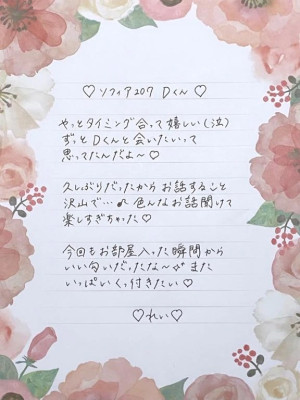 ♡ ソフィア207 Dくん ♡
やっとタイミング合って嬉しい(泣)
ずっとDくんと会いたいって
思ってたんだよ〜♡
久しぶりだったからお話すること
沢山で…♪ 色んなお話聞けて
楽しすぎちゃった♡
今回もお部屋入った瞬間から
いい匂いだったな〜✧ また
いっぱいくっ付きたい♡
♡れい♡